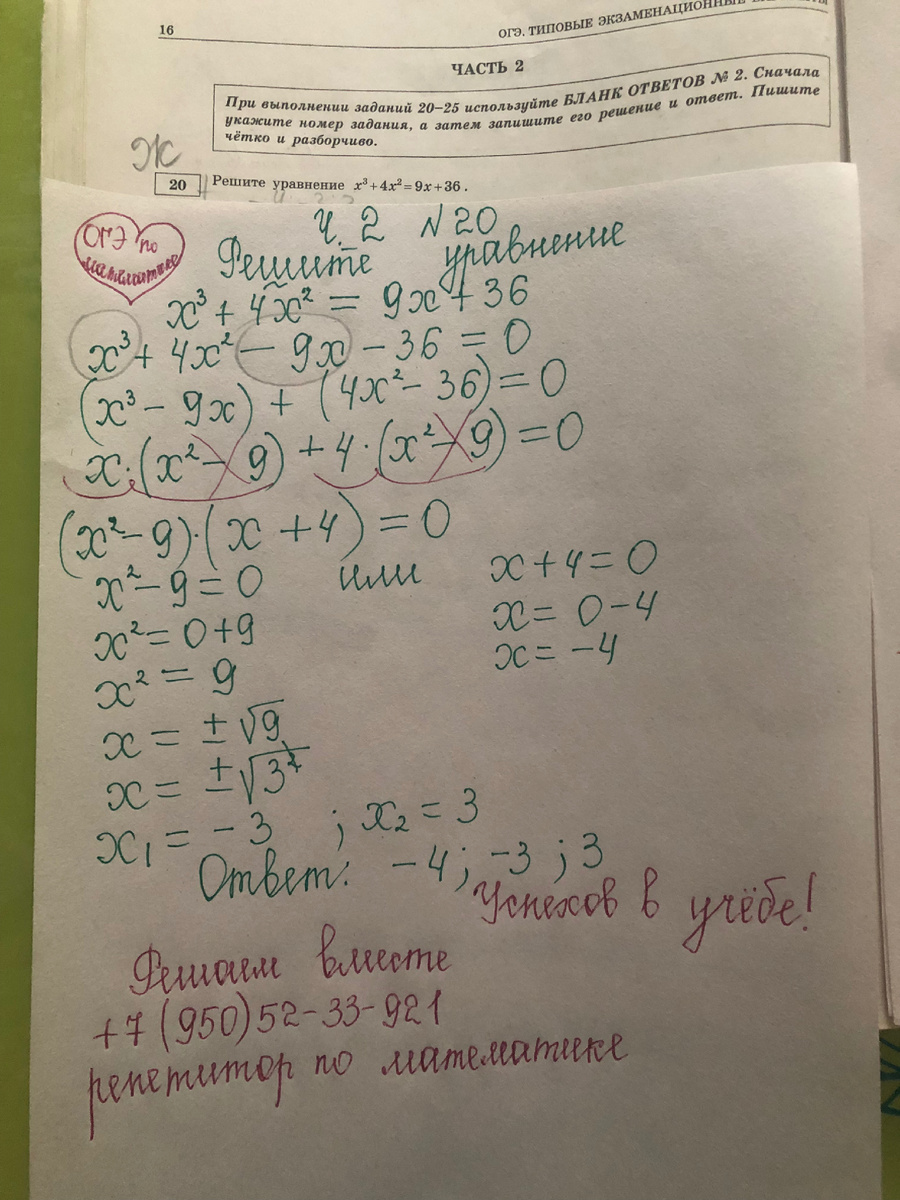 16
ОГЭ. ТИПОВЫЕ ЭКЗАМЕНАЦИОННЫЕ
ЧАСТЬ 2
При выполнении заданий 20–25 используйте БЛАНК ОТВЕТОВ № 2. Сначала
укажите номер задания, а затем запишите его решение и ответ. Пишите
чётко и разборчиво.
Ж
20 Решите уравнение x³+4x²=9x+36.
Ч. 2 №20
ОГЭ по
математике
Решите уравнение
x³ + 4x² = 9x + 36
x³ + 4x² − 9x − 36 = 0
(x³ − 9x) + (4x² − 36) = 0
x·(x² − 9) + 4·(x² − 9) = 0
(x² − 9)·(x + 4) = 0
x² − 9 = 0 или x + 4 = 0
x² = 0 + 9 x = 0 − 4
x² = 9 x = −4
x = ±√9
x = ±√3²
x₁ = −3 ; x₂ = 3
Ответ: −4; −3 ; 3
Успехов в учёбе!
Решаем вместе
+7 (950) 52-33-921
репетитор по математике